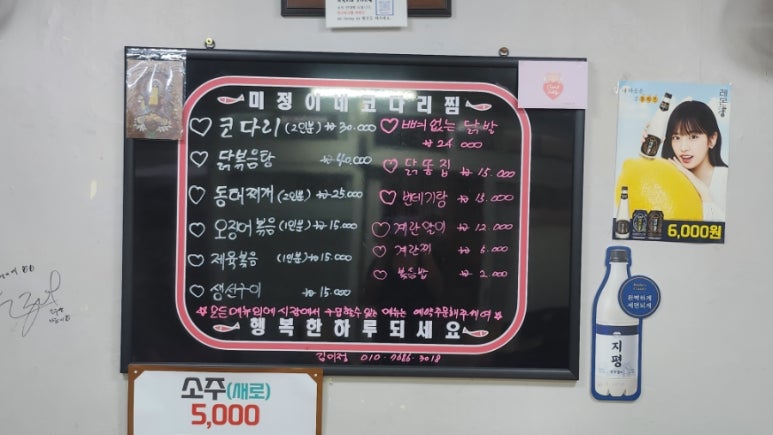 미정이네코다리찜
코다리 (2인분) ₩ 30.000
닭볶음탕 ₩ 40,000
동태찌개 (2인분) ₩ 25.000
오징어볶음 (1인분) ₩ 15.000
제육볶음 (1인분) ₩ 15.000
생선구이 ₩ 15.000
뼈없는 닭발
₩ 24 000
닭똥집 ₩ 15.000
번데기탕 ₩ 15.000
계란말이 ₩ 12.000
계란찌
볶음밥 ₩ 2.000
메뉴외에 시장에서 구입할수있는 메뉴는 예약주문해주세여
행복한하루되세요
010
소주(새로)
5,000
6,000원
완벽하게
지평